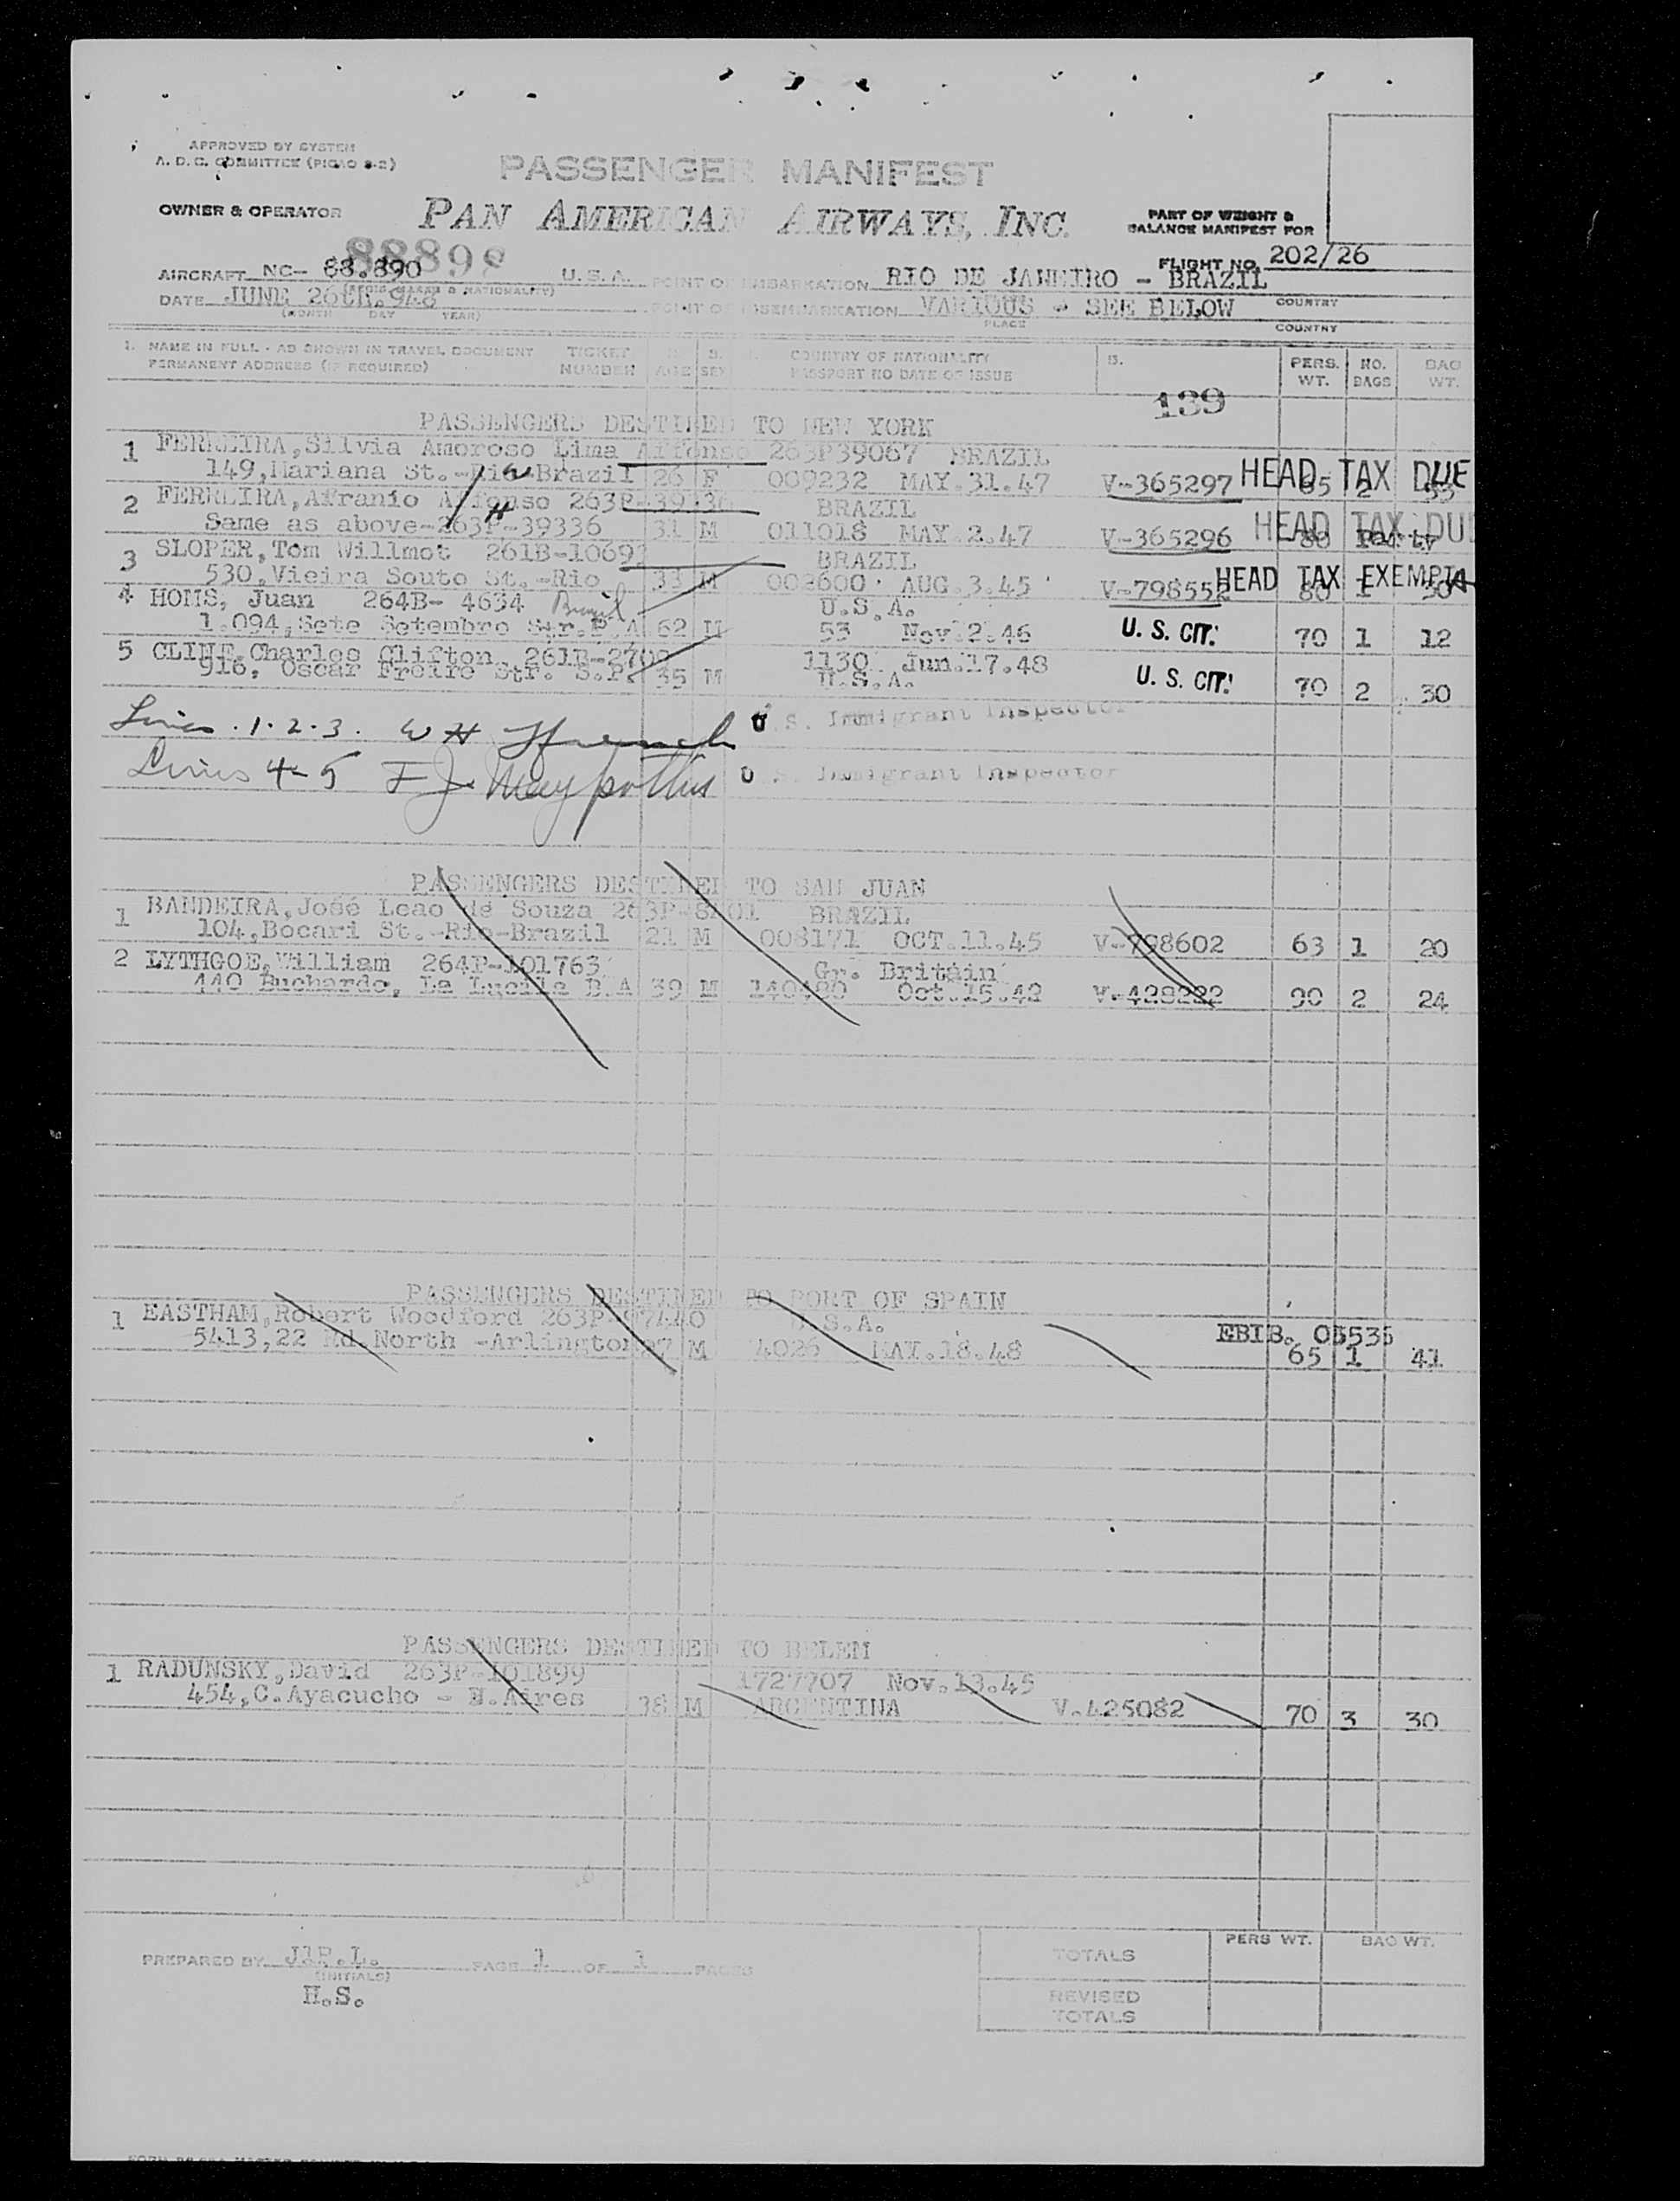 APPROVED BY SYSTEM
A. D. C. COMMITTEE (PICAO 9-2)
PASSENGER MANIFEST
OWNER & OPERATOR PAN AMERICAN AIRWAYS, INC.
PART OF WEIGHT &
BALANCE MANIFEST FOR
88898
FLIGHT NO. 202/26
AIRCRAFT NC- 88.890 U. S. A. POINT OF EMBARKATION RIO DE JANEIRO - BRAZIL
DATE JUNE 26th. 948 POINT OF DISEMBARKATION VARIOUS - SEE BELOW COUNTRY
(MONTH DAY YEAR) PLACE COUNTRY
1. NAME IN FULL - AS SHOWN IN TRAVEL DOCUMENT TICKET AGE SEX COUNTRY OF NATIONALITY PERS. NO. BAG
PERMANENT ADDRESS (IF REQUIRED) NUMBER PASSPORT NO DATE OF ISSUE WT. BAGS WT.
139
PASSENGERS DESTINED TO NEW YORK
1 FERREIRA,Silvia Amoroso Lima Affonso 263P39067 BRAZIL
149,Mariana St.-Rio-Brazil 26 F 009232 MAY.31.47 V-365297 HEAD TAX DUE
2 FERREIRA,Afranio Affonso 263P-39336 BRAZIL
Same as above-263P-39336 31 M 011018 MAY.2.47 V-365296 HEAD TAX DUE
3 SLOPER,Tom Willmot 261B-1069 BRAZIL
530,Vieira Souto St.-Rio 33 M 002600 AUG.3.45 V-798552 HEAD TAX EXEMPT
4 HOMS, Juan 264B- 4634 Brazil U.S.A.
1.094,Sete Setembro Str.P.A 62 M 53 Nov.2.46 U. S. CIT. 70 1 12
5 CLINE,Charles Clifton 261B-2709 1130 Jun.17.48
916, Oscar Freire Str. S.P. 35 M U.S.A. U. S. CIT. 70 2 30
Lines . 1. 2. 3. W H Ffrench U. S. Immigrant Inspector
Lines 4-5 F J U. S. Immigrant Inspector
PASSENGERS DESTINED TO SAN JUAN
1 BANDEIRA,José Leao de Souza 263P-8401 BRAZIL
104,Bocari St.-Rio-Brazil 21 M 008171 OCT.11.45 V-798602 63 1 20
2 LYTHGOE,William 264P-101763 Gr. Britain
440 Buchardo, La Lucila B.A 39 M 140480 Oct.15.42 V-428222 90 2 24
PASSENGERS DESTINED TO PORT OF SPAIN
1 EASTHAM,Robert Woodford 263P-97440 U.S.A. EBIB. 03535
5413,22 Rd.North -Arlington 27 M 4026 MAY.18.48 65 1 41
PASSENGERS DESTINED TO BELEM
1 RADUNSKY,David 263P-101899 1727707 Nov.13.45
454,C.Ayacucho - B.Aires 38 M ARGENTINA V.425082 70 3 30
PERS WT. BAG WT.
PREPARED BY J.P.L. PAGE 1 OF 1 PAGES TOTALS
(INITIALS)
H.S. REVISED
TOTALS